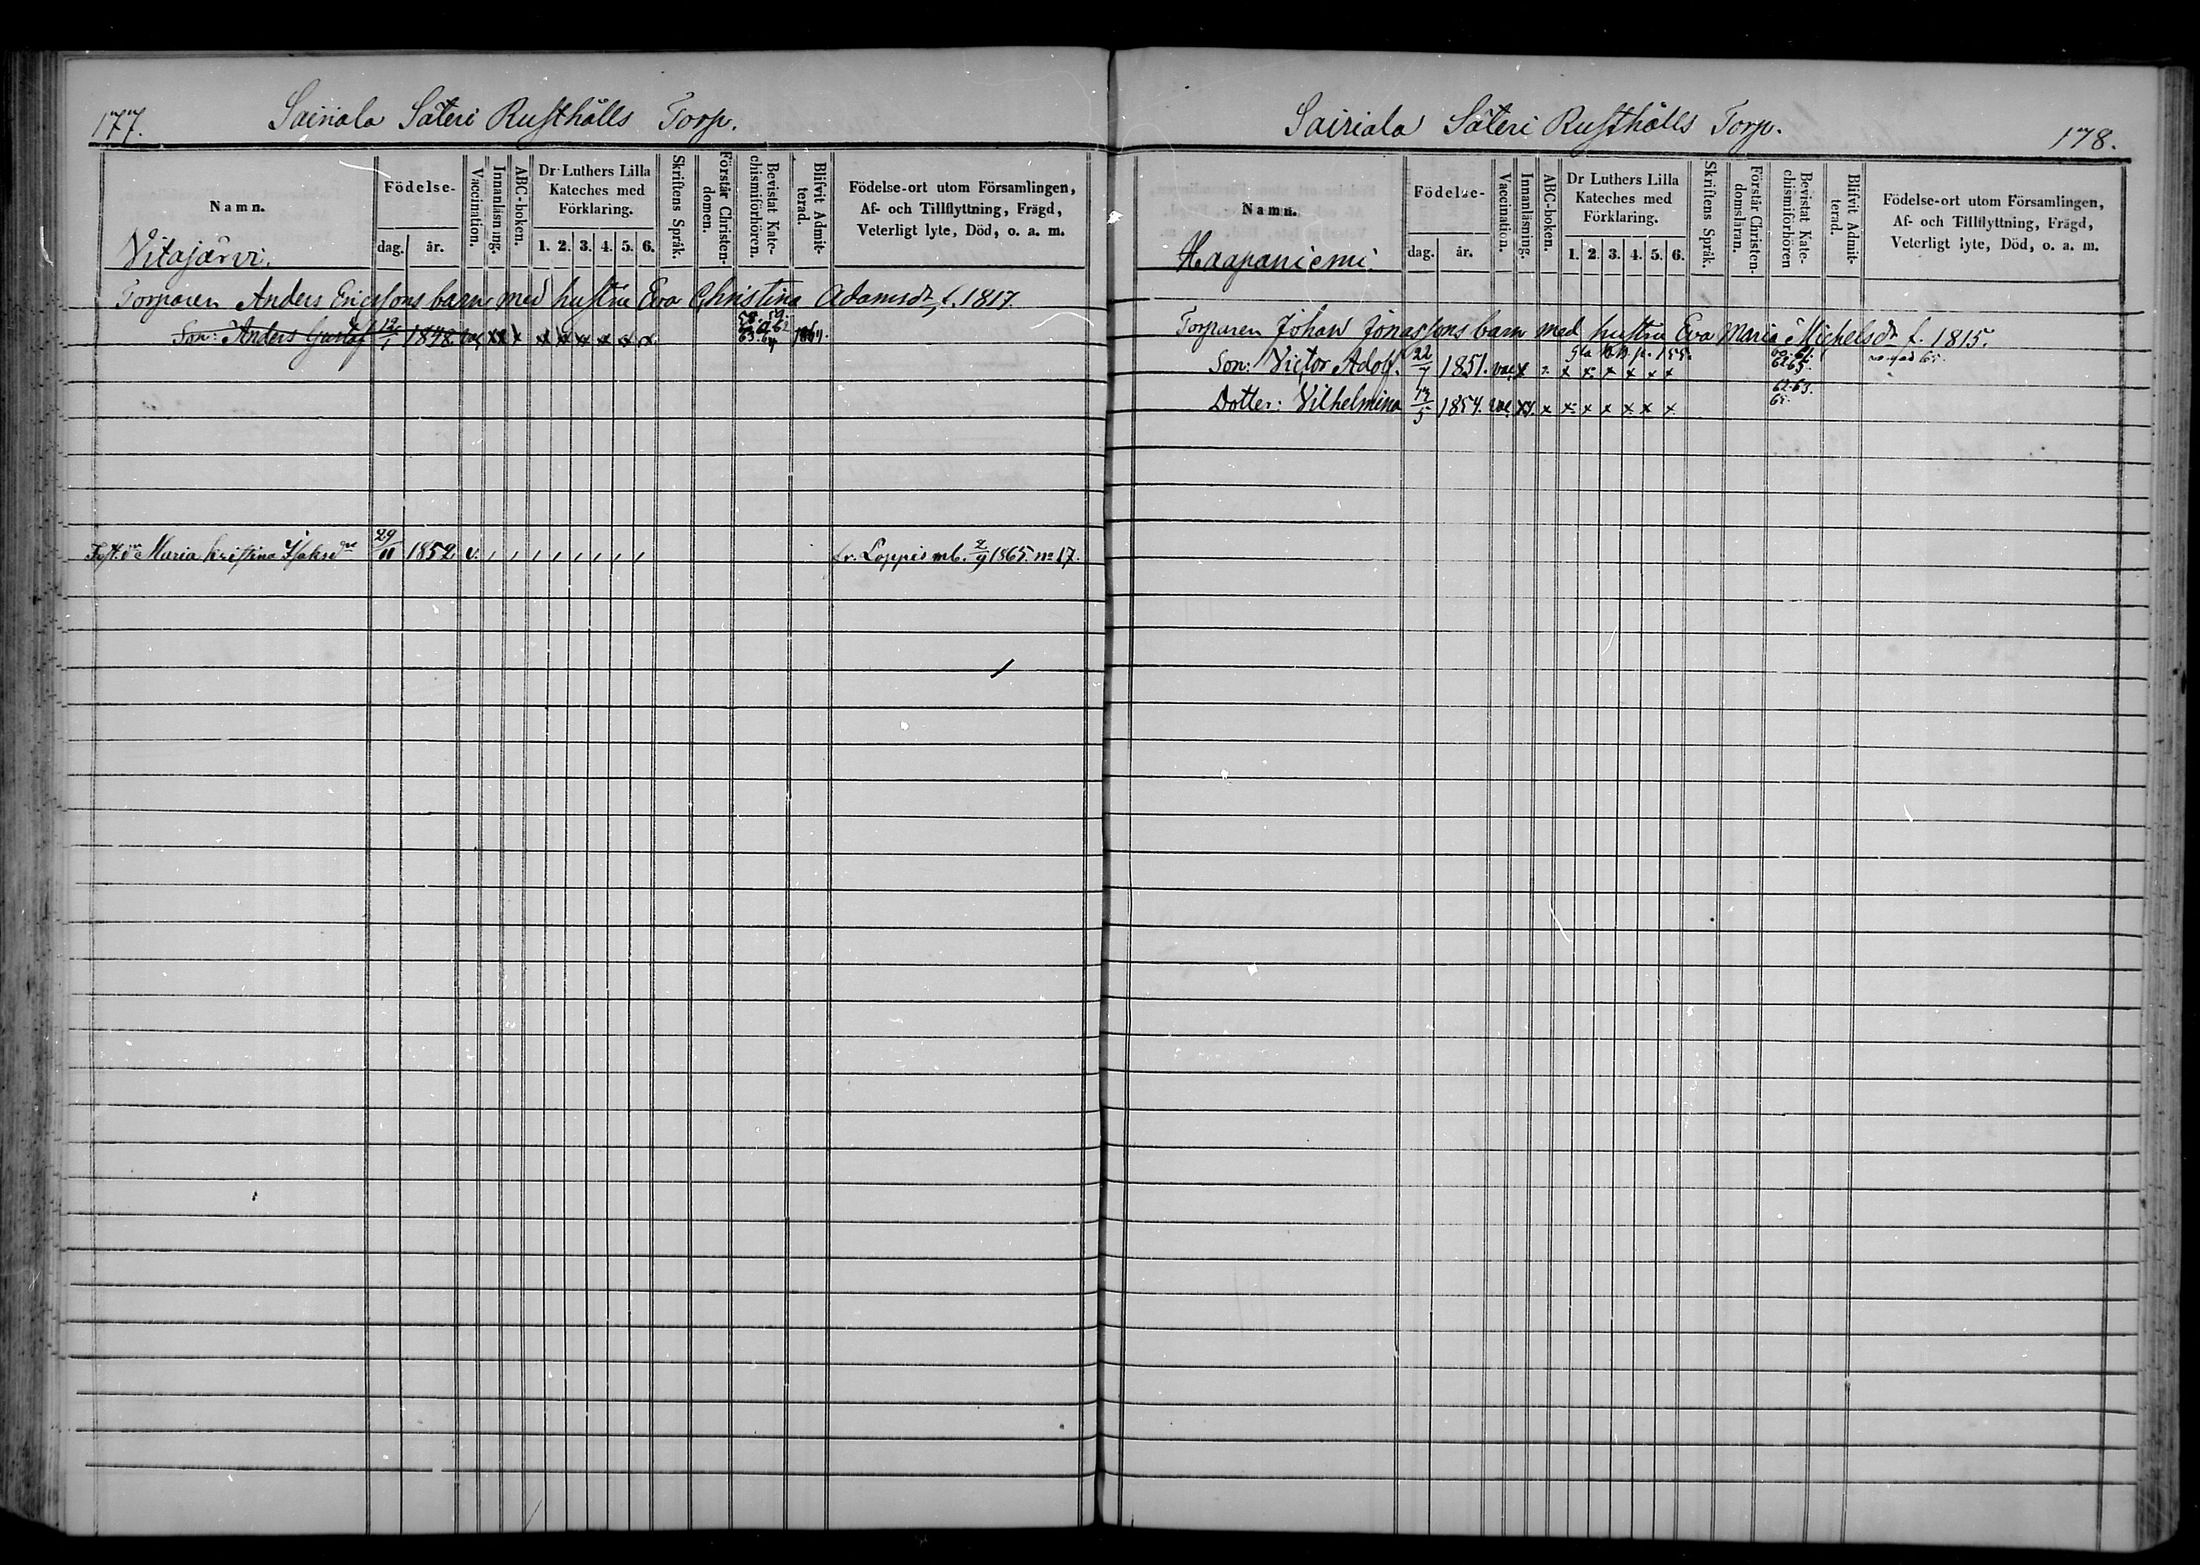 177.
Sairiala Säteri Rusthålls Torp.
Namn.
Födelse-
dag. år.
Vaccination.
Innanläsning.
ABC-boken.
Dr Luthers Lilla
Kateches med
Förklaring.
1. 2. 3. 4. 5. 6.
Skriftens Språk.
Förstår Christen-
domen.
Bevistat Kate-
chismiförhören.
Blifvit Admit-
terad.
Födelse-ort utom Församlingen,
Af- och Tillflyttning, Frägd,
Veterligt lyte, Död, o. a. m.
Vitajärvi.
Torparen Anders Ericssons barn med hustru Eva Christina Adamsdr f. 1817.
Son: Anders Gustaf 12/1 1848. vac x x x x x x x x x 58. 59. 63. 64 1864.
Maria Kristina Isaksdr 29/11 1852 v. fr. Loppis mb. 2/9 1865. no 17.
Sairiala Säteri Rusthålls Torp.
178.
Namn.
Födelse-
dag. år.
Vaccination.
Innanläsning.
ABC-boken.
Dr Luthers Lilla
Kateches med
Förklaring.
1. 2. 3. 4. 5. 6.
Skriftens Språk.
Förstår Christen-
domsläran.
Bevistat Kate-
chismiförhören
Blifvit Admit-
terad.
Födelse-ort utom Församlingen,
Af- och Tillflyttning, Frägd,
Veterligt lyte, Död, o. a. m.
Haapaniemi.
Torparen Johan Jonassons barn med hustru Eva Maria Michelsdr f. 1815.
Son: Victor Adolf. 22/7 1851. vac x x x x x x x 62. 65.
Dotter: Vilhelmina 17/5 1854. vac. x x. x x x x x x x 62. 63. 65.